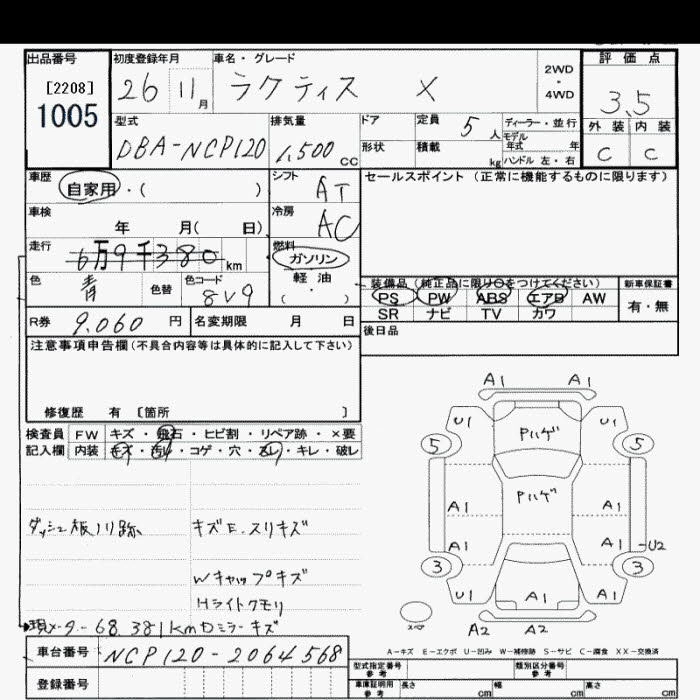 出品番号
[2208]
1005
初度登録年月
26 11月
車名・グレード
ラクティス X
2WD
・
4WD
評価点
3.5
外装 内装
C C
型式
DBA-NCP120
排気量
1,500 CC
ドア
形状
定員 5人
積載 kg
ディーラー・並行
モデル年式 年
ハンドル 左・右
車歴
自家用・( )
シフト
AT
車検
年 月( 日)
冷房
AC
走行
6万9千380km
燃料
ガソリン
軽油
(・)
色
青
色替
色コード
8V9
R券 9,060円
名変期限 月 日
セールスポイント(正常に機能するものに限ります)
装備品(純正品に限り○をつけてください)
PS PW ABS エアB AW
SR ナビ TV カワ
新車保証書
有・無
後日品
注意事項申告欄(不具合内容等は具体的に記入して下さい)
修復歴 有 [箇所 ]
検査員
記入欄
FW キズ・飛石・ヒビ割・リペア跡・×要
内装 キズ・汚レ・コゲ・穴・スレ・キレ・破レ
ダッシュ板ノリ跡
キズE.スリキズ
Wキャップキズ
Hライトクモリ
現メーター68,381km Dミラーキズ
車台番号 NCP120-2064568
登録番号
A1 A1
U1 Pハゲ U1
5 5
Pハゲ
A1 A1
A1 A1 U2
3 3
U1 A1 U1
A2 A2
A-キズ E-エクボ U-凹み W-補修跡 S-サビ C-腐食 XX-交換済
型式指定番号
参考
類別区分番号
参考
車庫証明用
参考
長さ cm 幅 cm 高さ cm